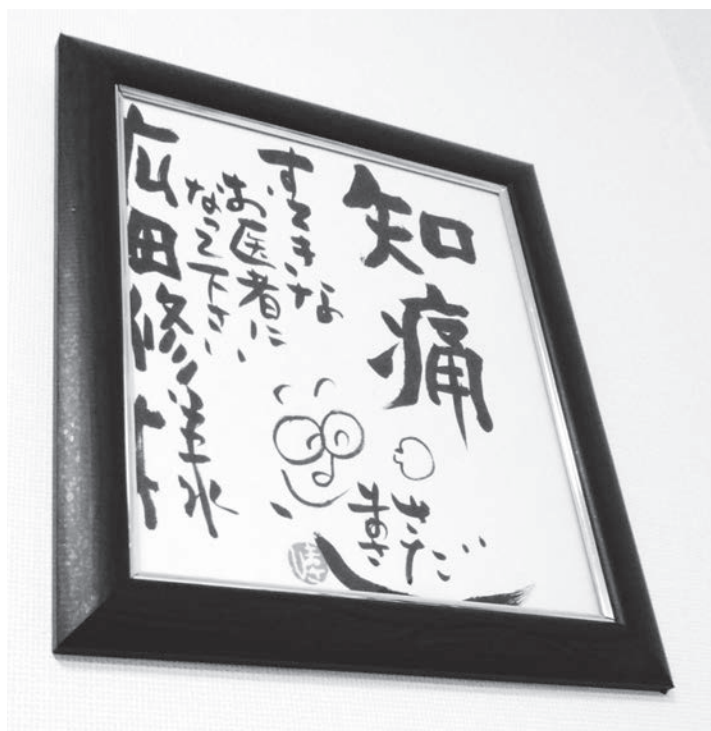 知痛
すてきな
お医者に
なって下さい
広田修様
さだ
まさし